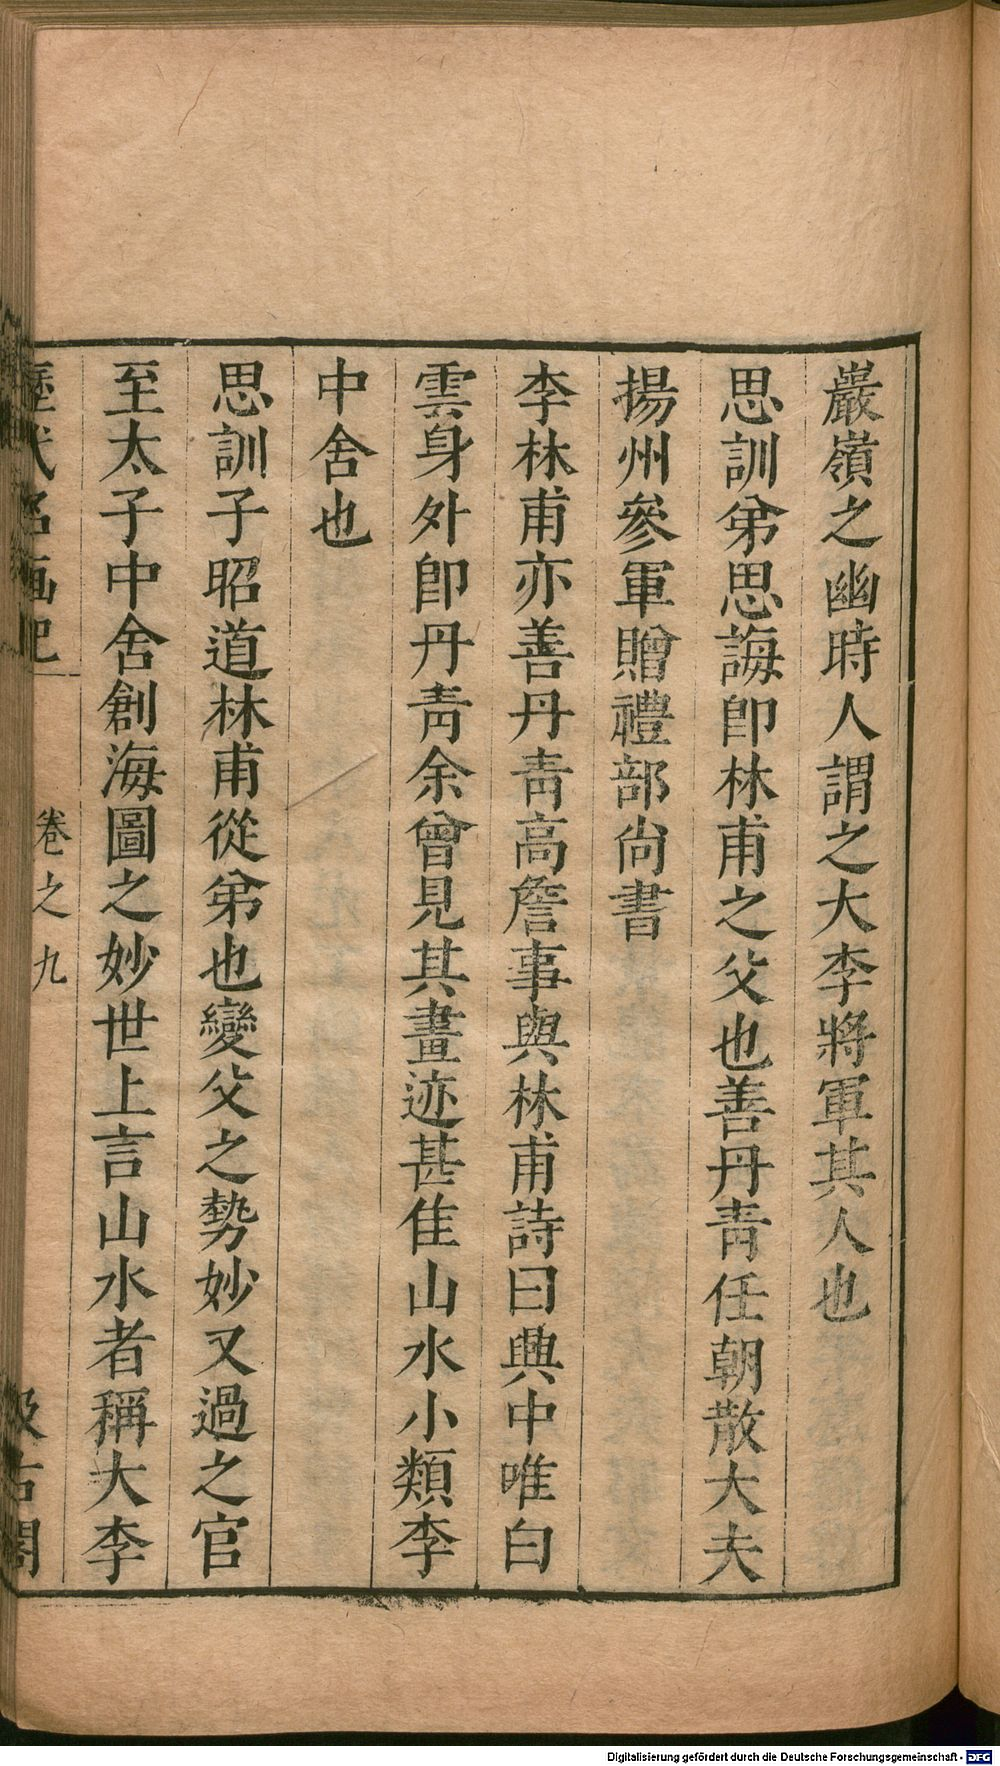 巖嶺之幽時人謂之大李將軍其人也
思訓弟思誨卽林甫之父也善丹靑任朝散大夫
揚州參軍贈禮部尙書
李林甫亦善丹靑高詹事與林甫詩曰興中唯白
雲身外卽丹靑余曾見其畫迹甚佳山水小類李
中舍也
思訓子昭道林甫從弟也變父之勢妙又過之官
至太子中舍創海圖之妙世上言山水者稱大李
歷代名畫記 卷之九 汲古閣
Digitalisierung gefördert durch die Deutsche Forschungsgemeinschaft - DFG